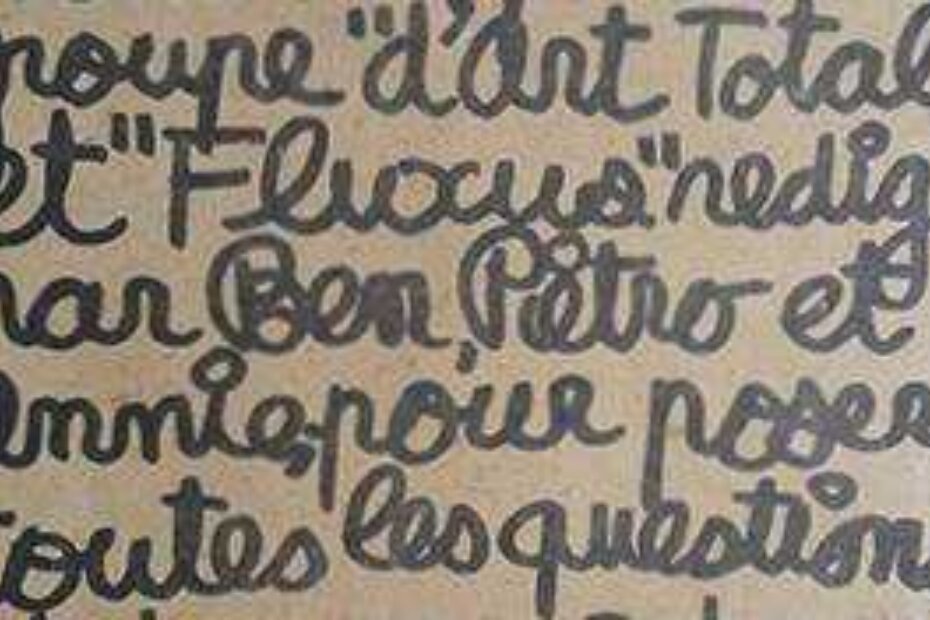 roupe "d'art Total
et "Fluxus" redig
par Ben, Piêtro et
Annie, pour poser
toutes les question